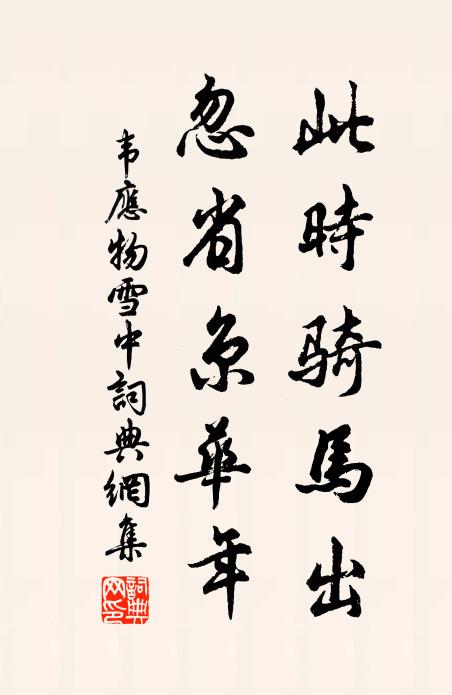 此時騎馬出
忽省京華年
韦應物雪中詞典網集
詞典网印